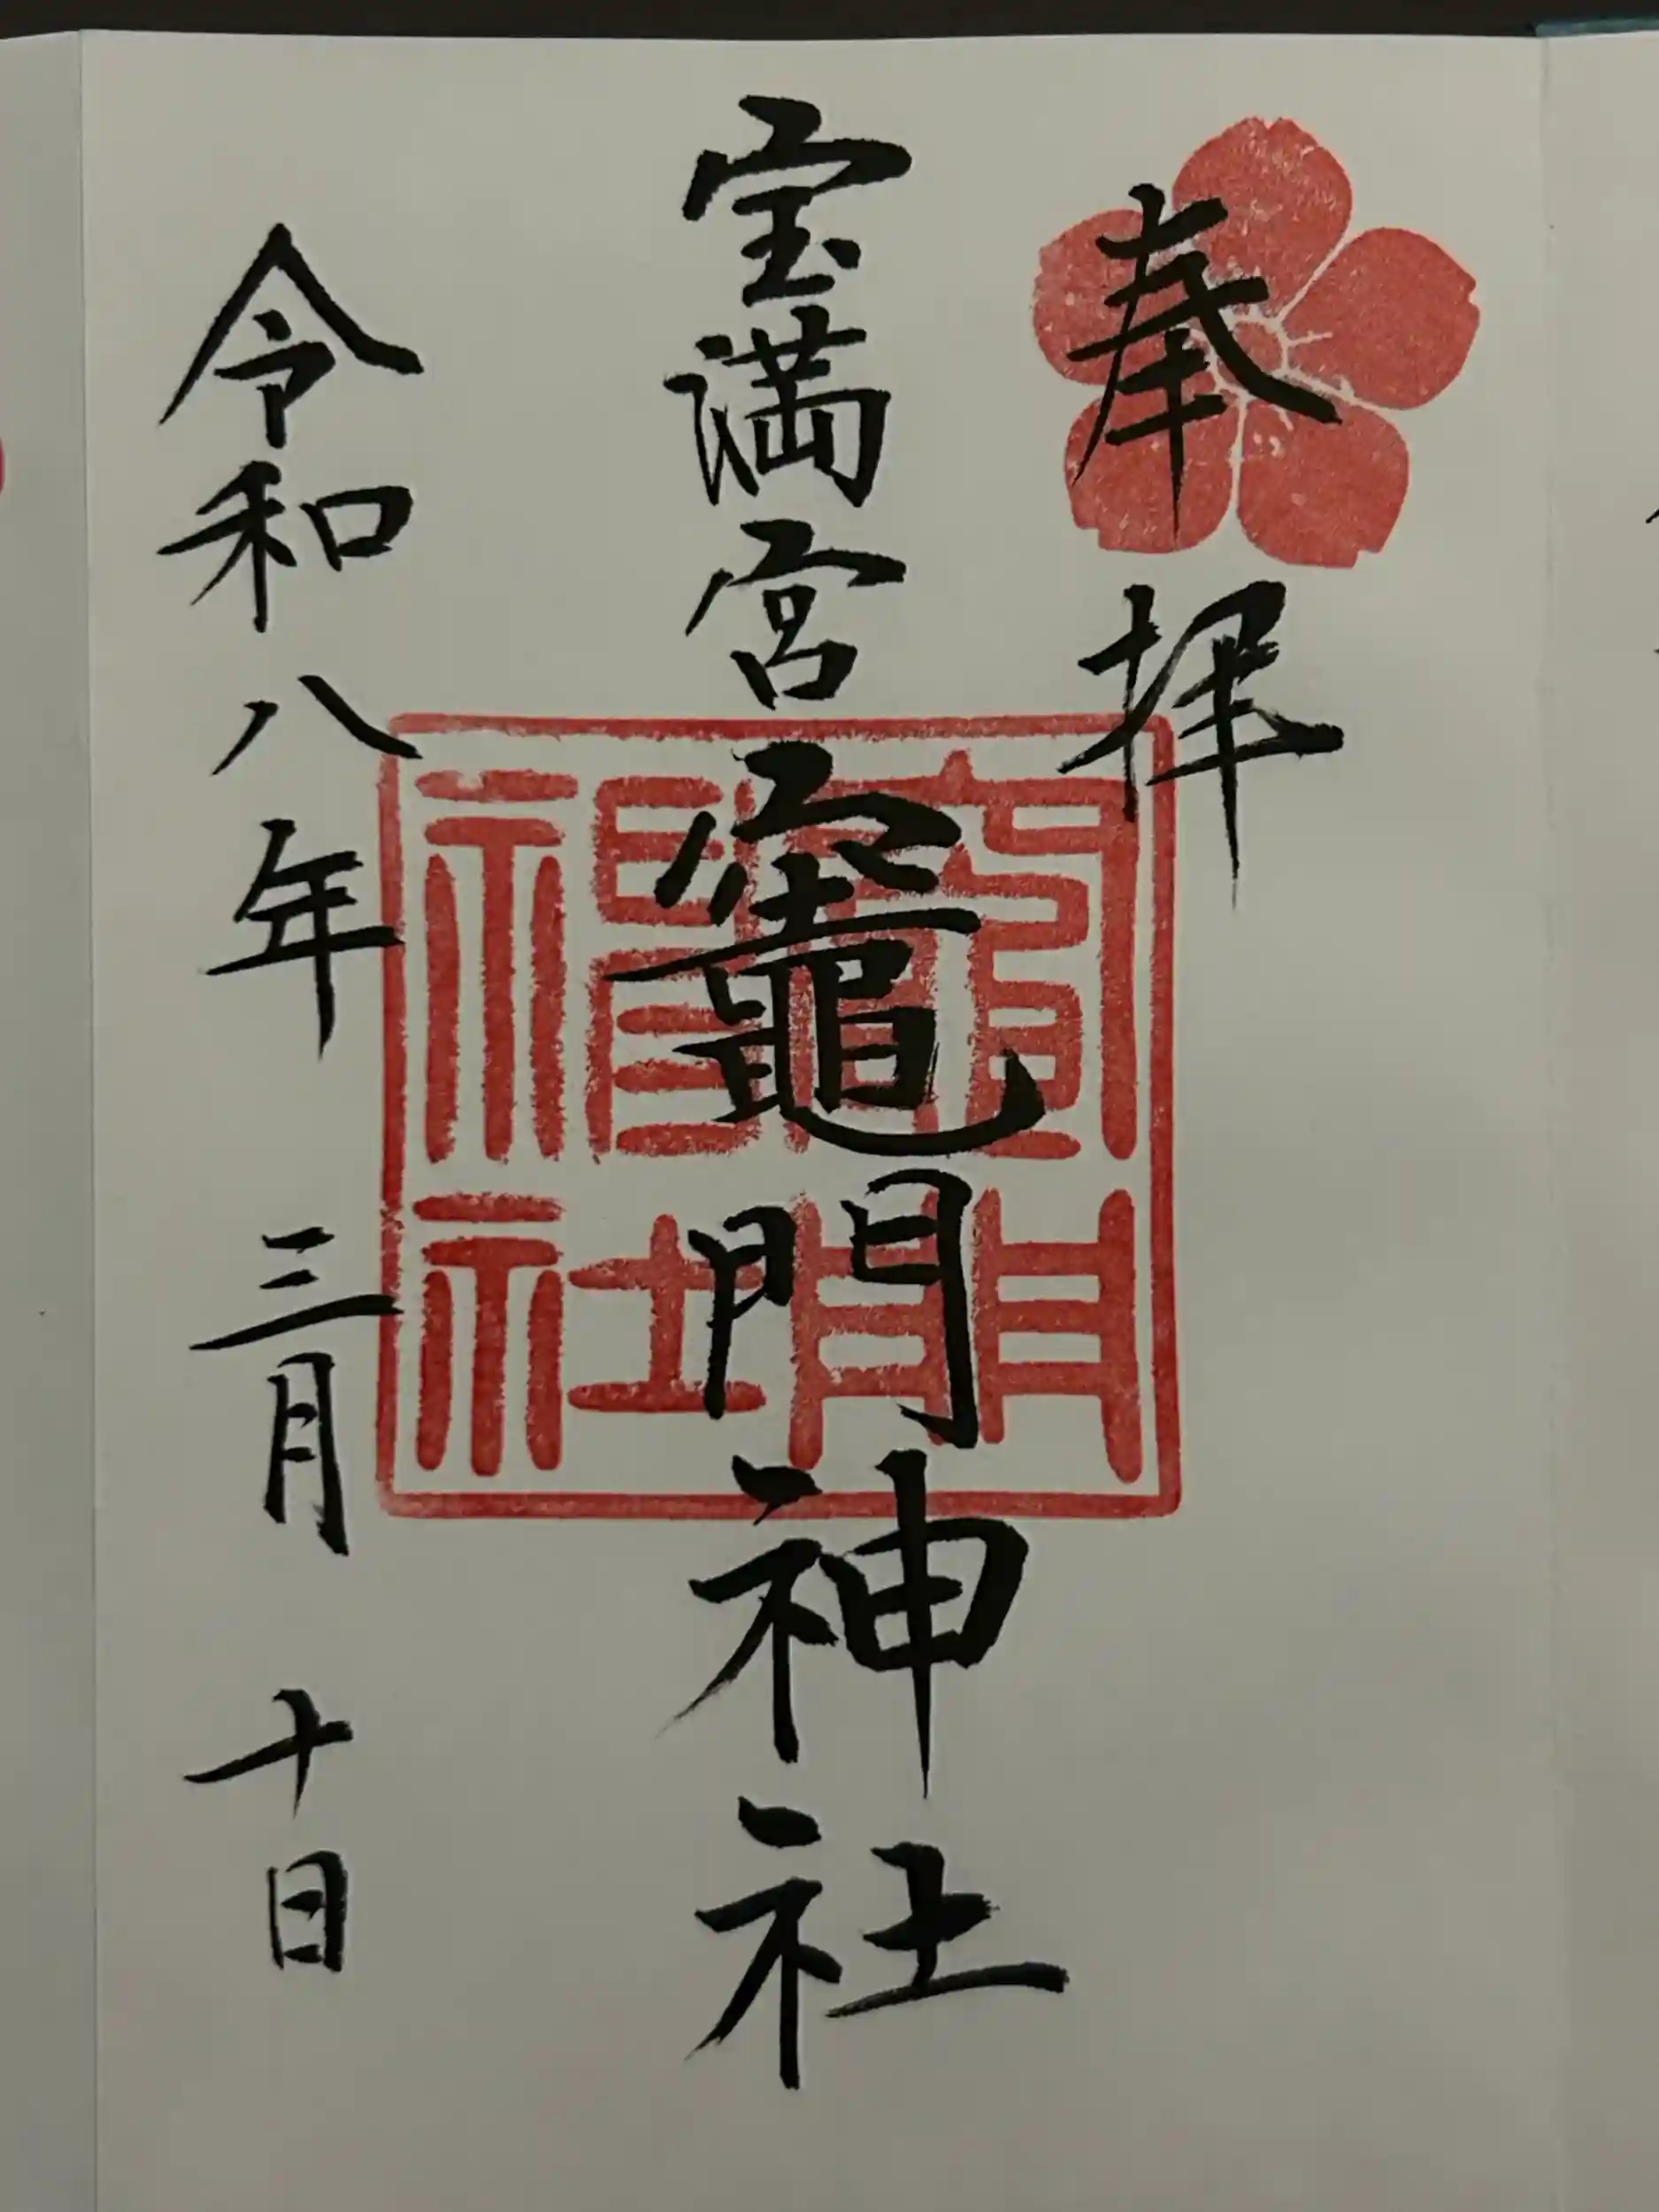 奉拝
宝満宮竈門神社
令和八年三月十日
竈門
神社